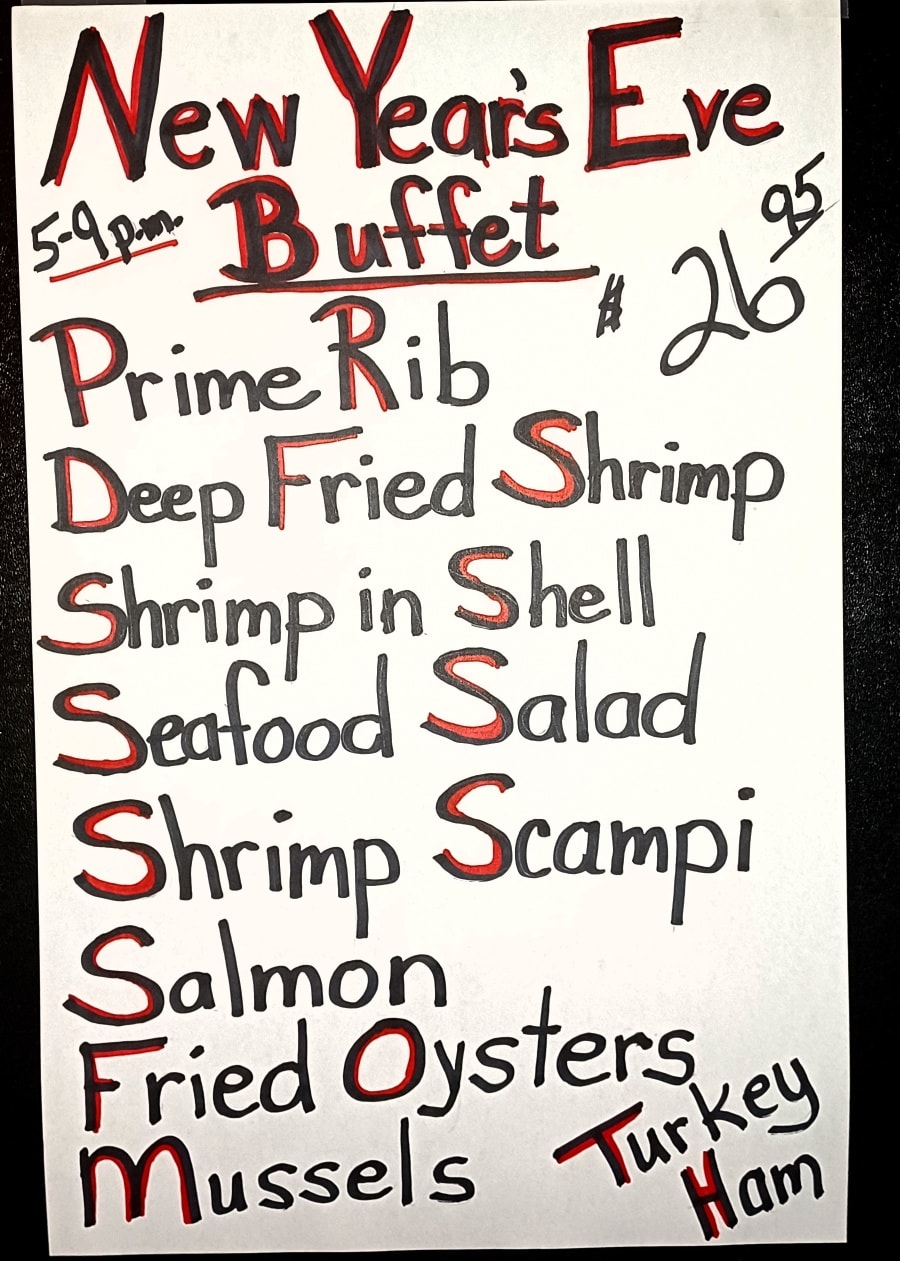 New Year's Eve
5-9 p.m.
Buffet
$ 26 95
Prime Rib
Deep Fried Shrimp
Shrimp in Shell
Seafood Salad
Shrimp Scampi
Salmon
Fried Oysters
Mussels
Turkey
Ham